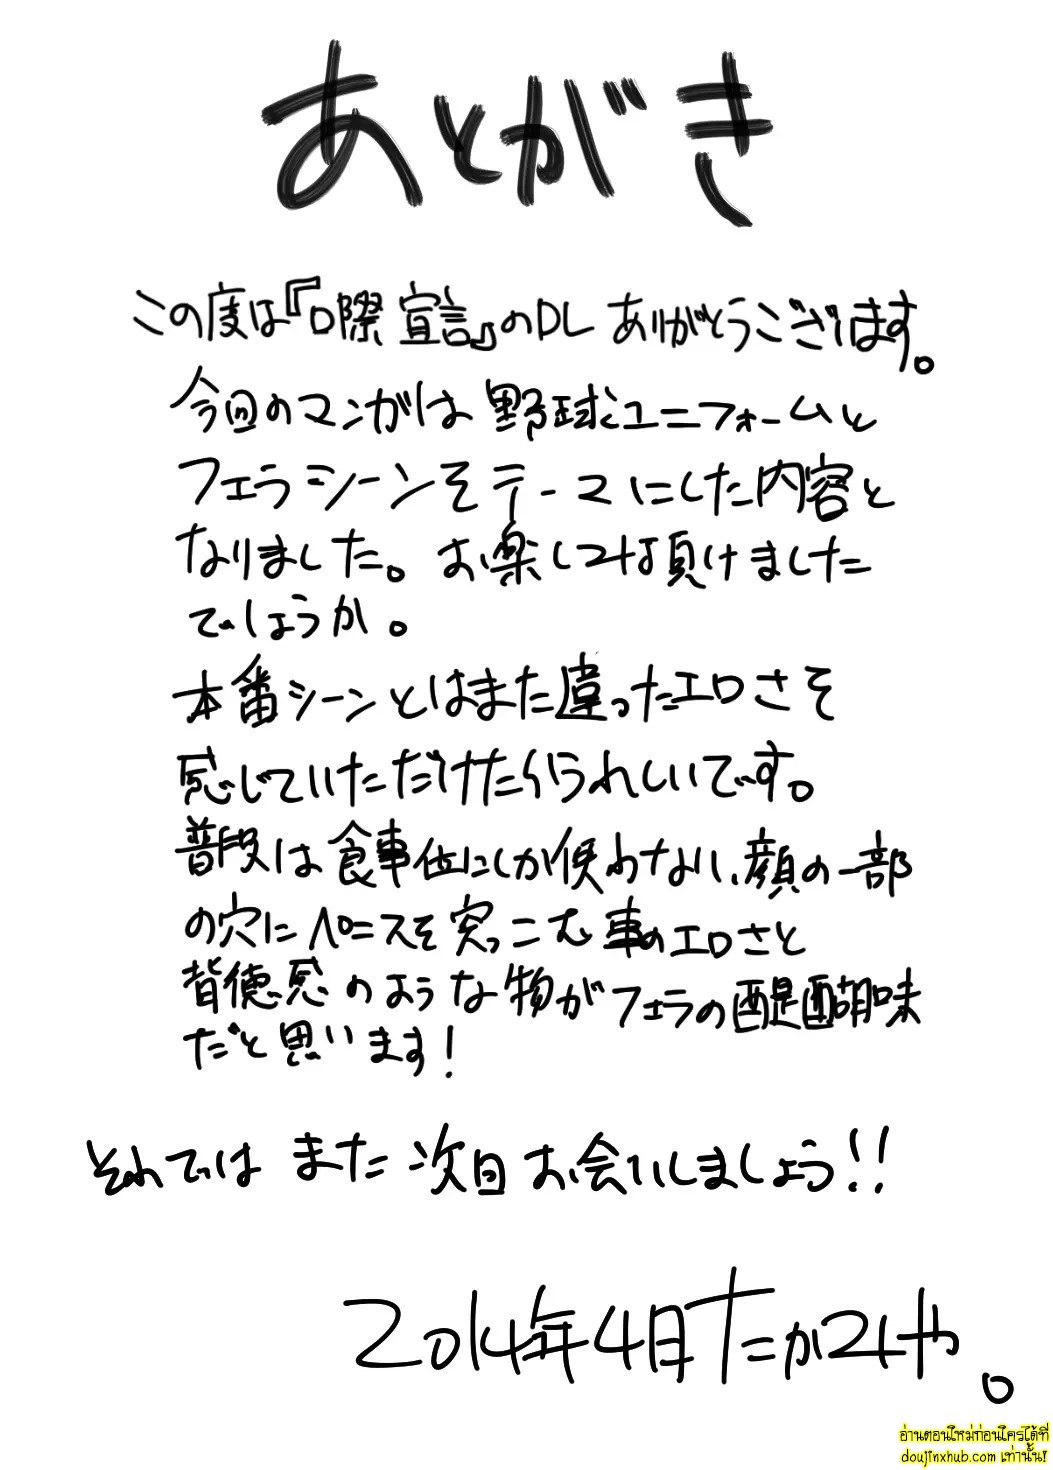 あとがき
この度は『口際宣言』のDLありがとうございます。
今回のマンガは野球ユニフォームと
フェラシーンをテーマにした内容と
なりました。お楽しみ頂けました
でしょうか。
本番シーンとはまた違ったエロさを
感じていただけたらうれしいです。
普段は食事位にしか使わない、顔の一部
の穴にペニスを突っこむ事のエロさと
背徳感のような物がフェラの醍醐味
だと思います!
それでは また次回お会いしましょう!!
2014年4月たかつや。
อ่านตอนใหม่ก่อนใครได้ที่
doujinxhub.com เท่านั้น!